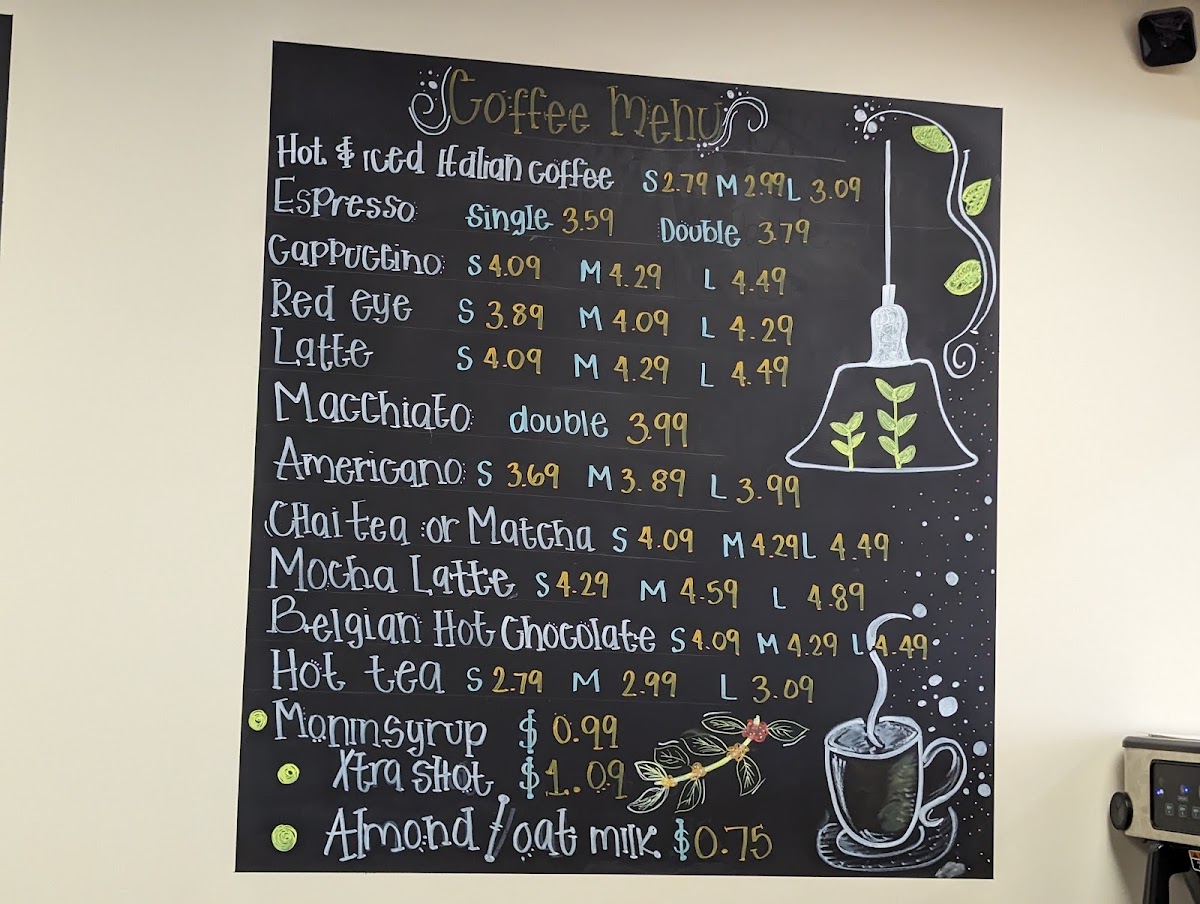 Coffee Menu
Hot & iced Italian coffee S 2.79 M 2.99 L 3.09
Espresso Single 3.59 Double 3.79
Cappuccino S 4.09 M 4.29 L 4.49
Red eye S 3.89 M 4.09 L 4.29
Latte S 4.09 M 4.29 L 4.49
Macchiato double 3.99
Americano S 3.69 M 3.89 L 3.99
CHai tea or Matcha S 4.09 M 4.29 L 4.49
Mocha Latte S 4.29 M 4.59 L 4.89
Belgian Hot Chocolate S 4.09 M 4.29 L 4.49
Hot tea S 2.79 M 2.99 L 3.09
Monin syrup $ 0.99
Xtra SHot $ 1.09
Almond / oat milk $0.75